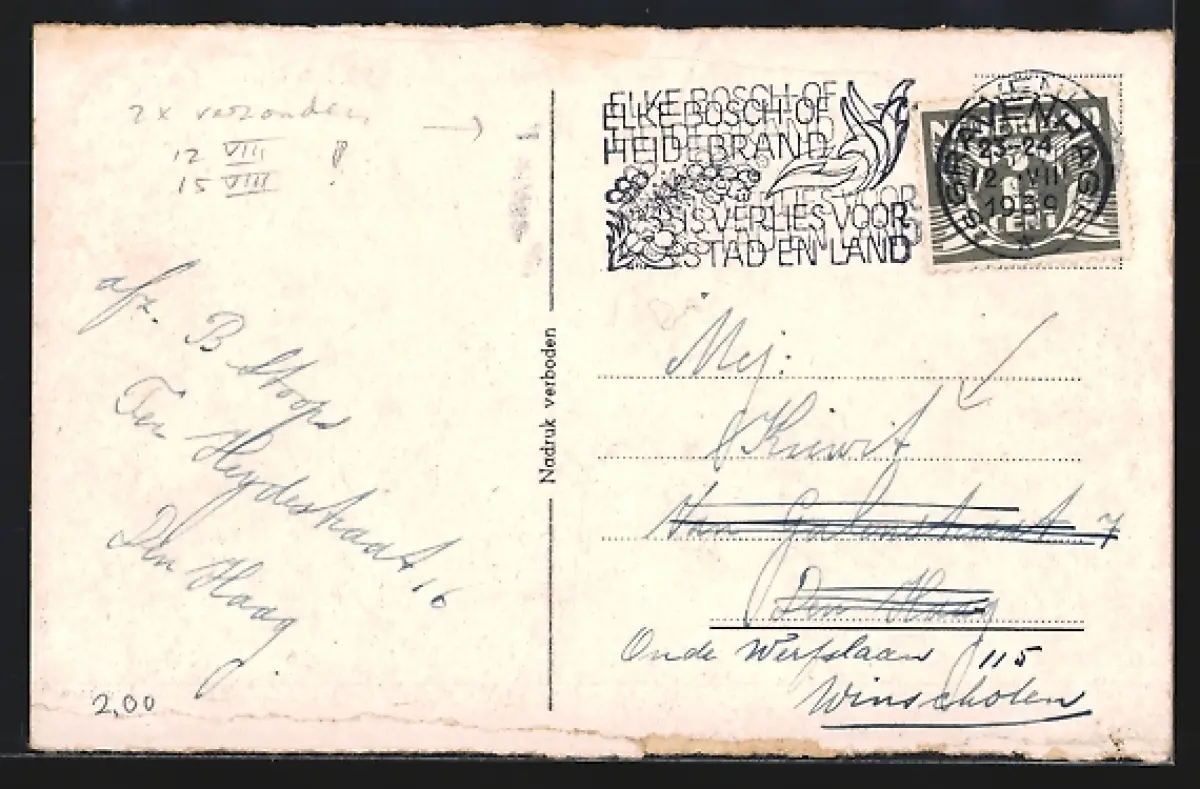 2x verzonden
12 VIII
15 VIII
afz. B Stoops
Ter Heydestraat 16
Den Haag
2,00
Nadruk verboden
ELKE BOSCH-OF
HEIDEBRAND
IS VERLIES VOOR
STAD EN LAND
'S GRAVENHAGE
23-24
12 VIII
1939
CENT
Mej:
Kiewit
Van Galenstraat 7
Den Haag
Oude Werfslaan 115
Winschoten